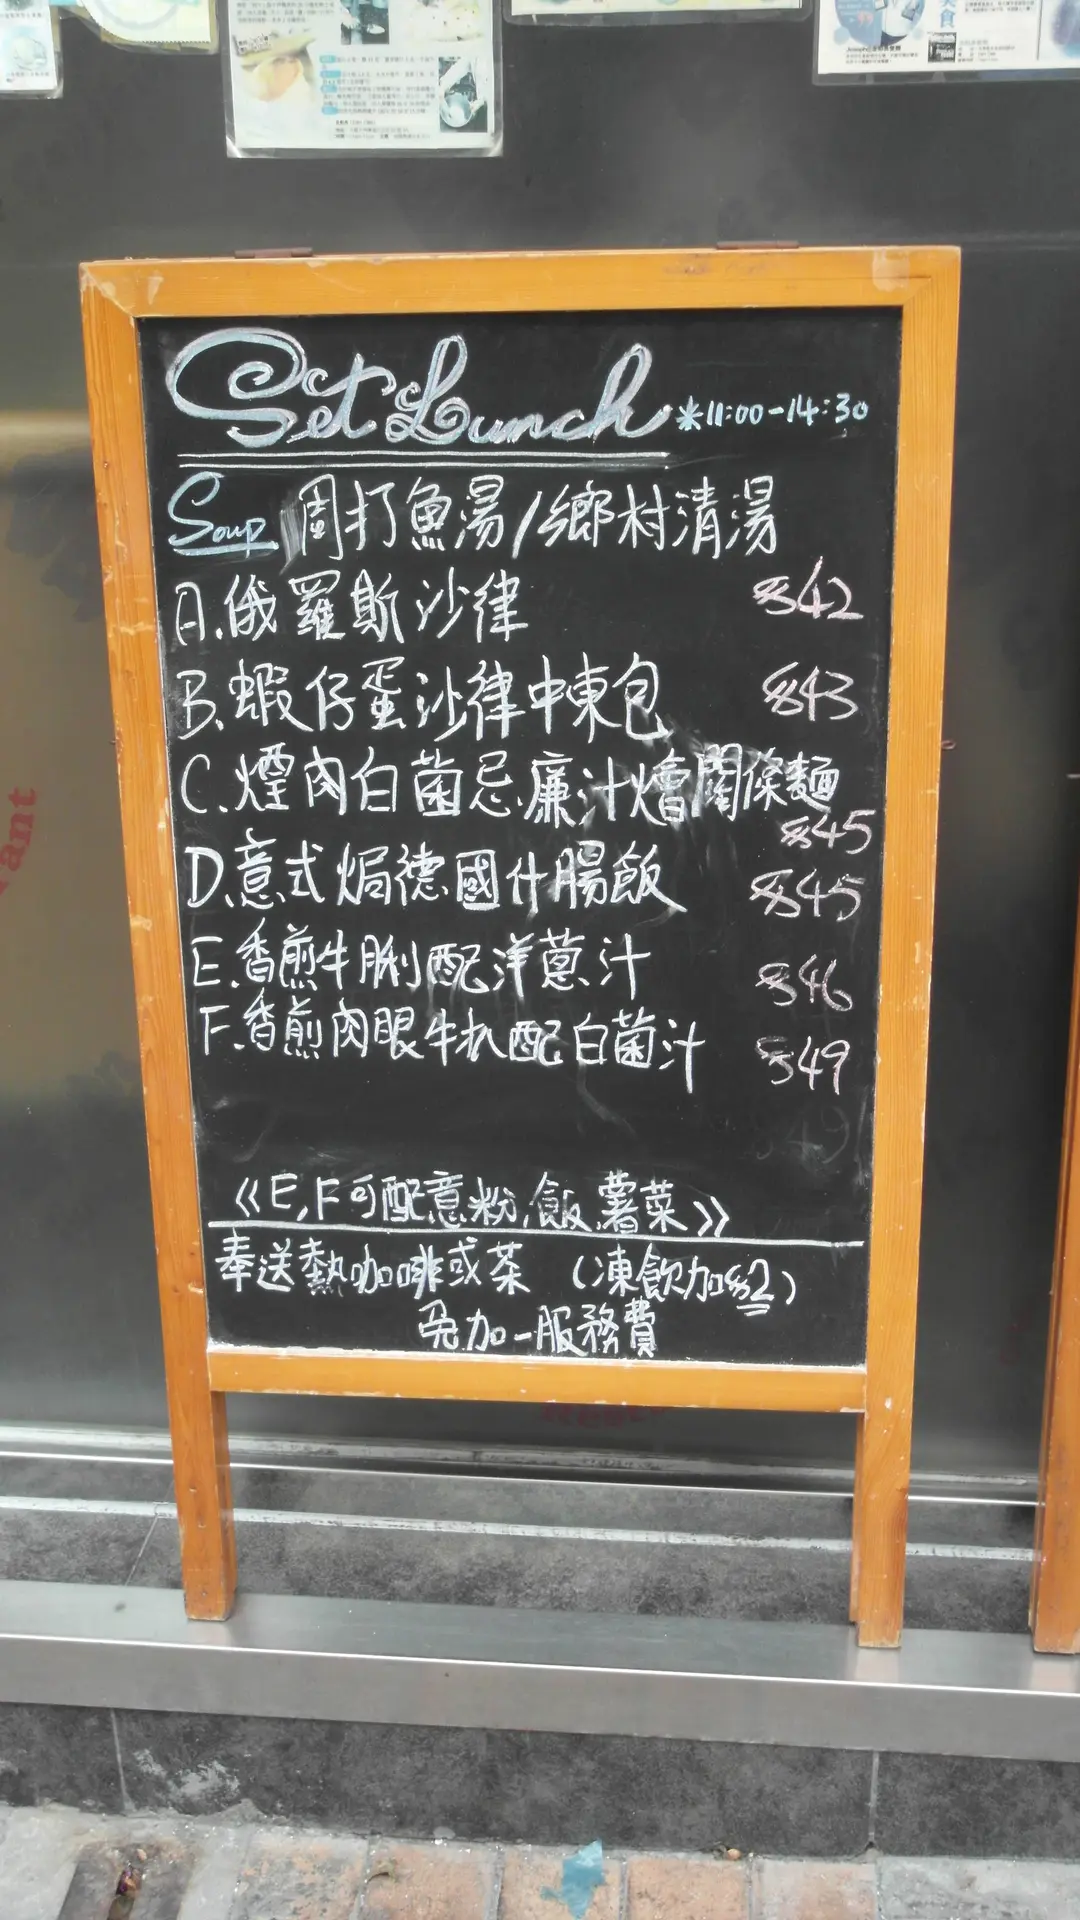 Set Lunch *11:00-14:30
Soup 周打魚湯/鄉村清湯
A.俄羅斯沙律 $42
B.蝦仔蛋沙律中東包 $43
C.煙肉白菌忌廉汁燴闊條麵
$45
D.意式焗德國什腸飯 $45
E.香煎牛脷配洋蔥汁 $46
F.香煎肉眼牛扒配白菌汁 $49
《E,F可配意粉,飯,薯菜》
奉送熱咖啡或茶 (凍飲加$2)
免加一服務費